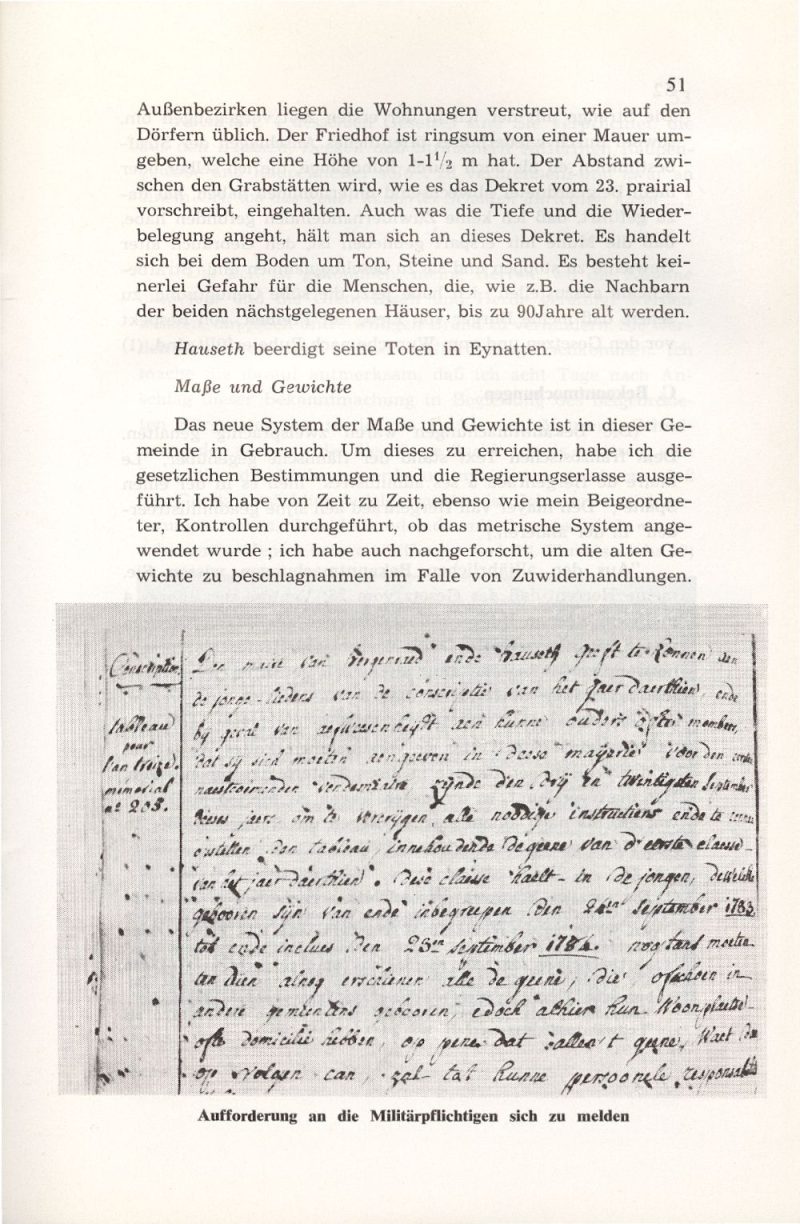 51
Außenbezirken liegen die Wohnungen verstreut, wie auf den
Dörfern üblich. Der Friedhof ist ringsum von einer Mauer um-
geben, welche eine Höhe von 1-1¹/₂ m hat. Der Abstand zwi-
schen den Grabstätten wird, wie es das Dekret vom 23. prairial
vorschreibt, eingehalten. Auch was die Tiefe und die Wieder-
belegung angeht, hält man sich an dieses Dekret. Es handelt
sich bei dem Boden um Ton, Steine und Sand. Es besteht kei-
nerlei Gefahr für die Menschen, die, wie z.B. die Nachbarn
der beiden nächstgelegenen Häuser, bis zu 90Jahre alt werden.
Hauseth beerdigt seine Toten in Eynatten.
Maße und Gewichte
Das neue System der Maße und Gewichte ist in dieser Ge-
meinde in Gebrauch. Um dieses zu erreichen, habe ich die
gesetzlichen Bestimmungen und die Regierungserlasse ausge-
führt. Ich habe von Zeit zu Zeit, ebenso wie mein Beigeordne-
ter, Kontrollen durchgeführt, ob das metrische System ange-
wendet wurde ; ich habe auch nachgeforscht, um die alten Ge-
wichte zu beschlagnahmen im Falle von Zuwiderhandlungen.
Conscription
tableau
pour
l'an treize.
mémorial
n° 203.
Den maire van ende hauseth geeft te kennen aen
de jonge-lieders van de conscriptie van het jaer daerthien, ende
by geval van aefwesenheydt aen hunne ouders ofte
dat sy sich moeten aengeven in deese mayerie voor den
zynde den dry en twintigsten September
deses jaers om te vercrygen alle noodige instructiens ende te
den tableau, innehoudende de geene van d'eerste classe
van het jaer daerthien. dese classe haelt in de jongen, dewelke
gebooren sijn van ende inbegreepen den 24en September 1783
tot ende inclues den 23en September 1784. nogtans moeten
ten dien alnog erschienen alle de geene, die ofschoen in
andere gemeintens gebooren, edoch alhier hun Woonplaetse
ofte domicilie hebben, op pene dat allen 't geene, Waet
op volgen can, zal tot hunne persoonele responsab
Aufforderung an die Militärpflichtigen sich zu melden